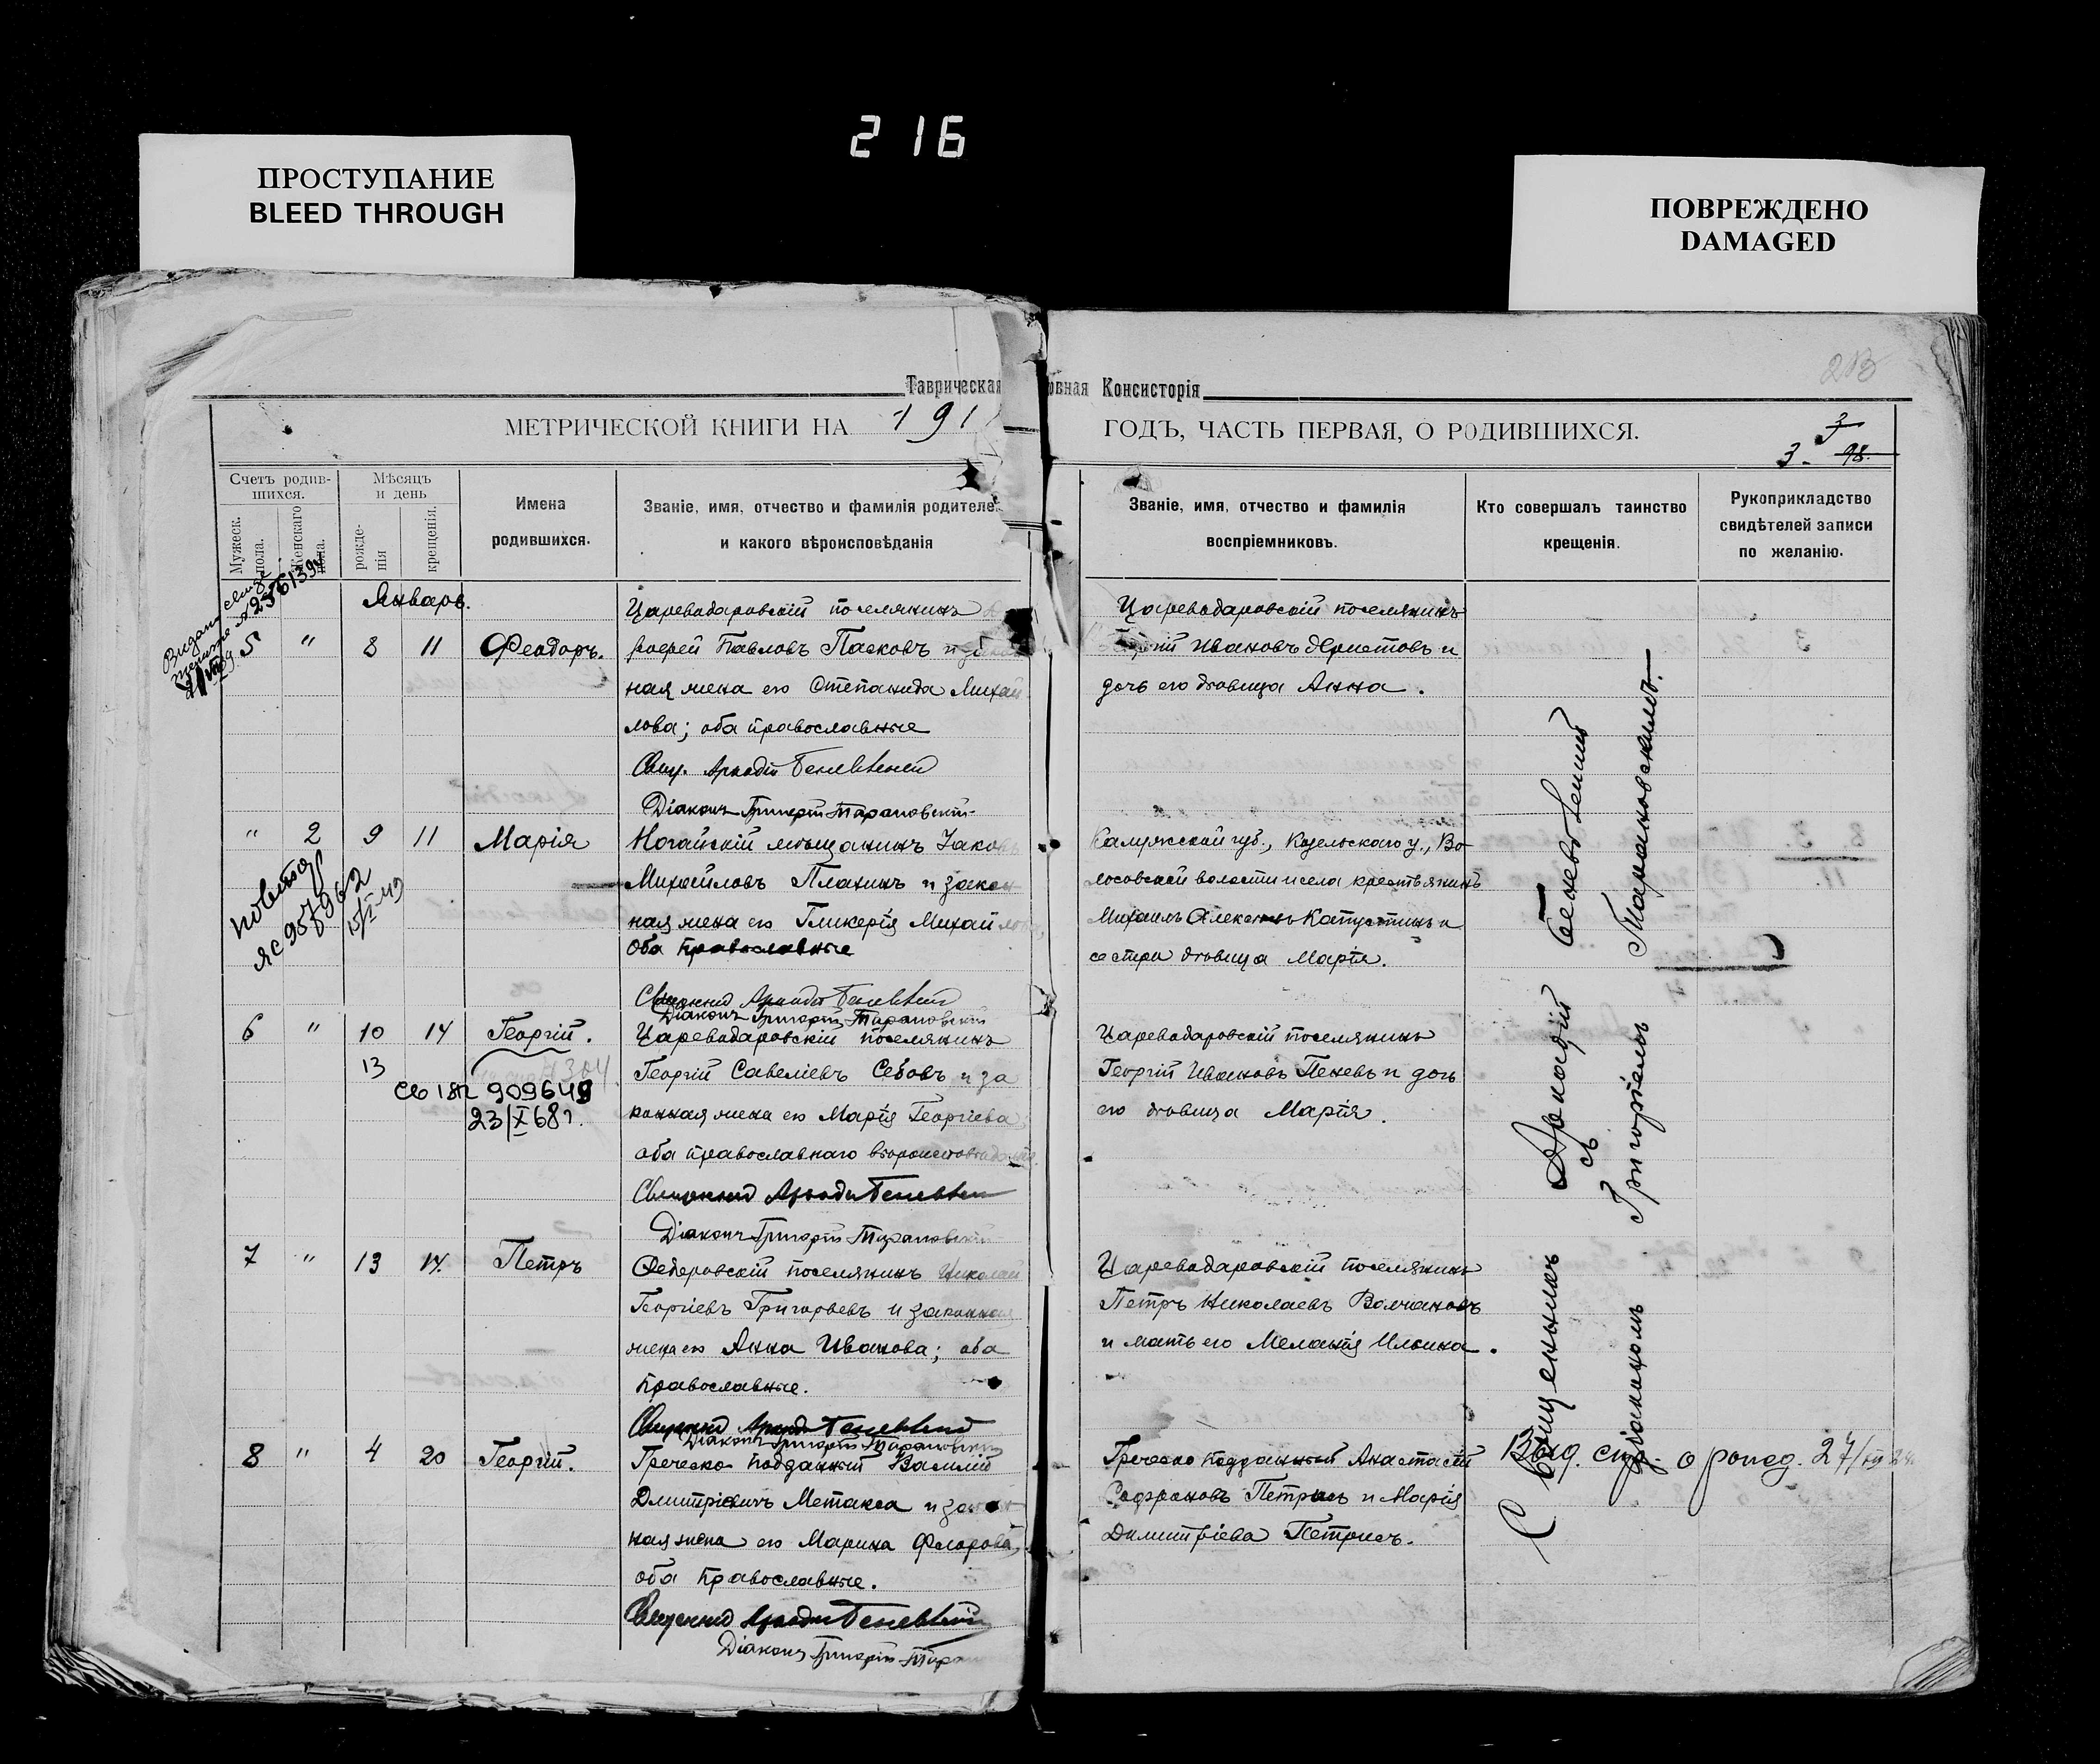 216
ПРОСТУПАНИЕ
BLEED THROUGH
ПОВРЕЖДЕНО
DAMAGED
Таврическая
овная Консисторія
МЕТРИЧЕСКОЙ КНИГИ НА 191
ГОДЪ, ЧАСТЬ ПЕРВАЯ, О РОДИВШИХСЯ.
3
3. 98.
Счетъ родив-
шихся.
Мужеск.
пола.
Женскаго
пола.
Мѣсяцъ
и день
рожде-
нія
крещенія.
Имена
родившихся.
Званіе, имя, отчество и фамилія родителе
и какого вѣроисповѣданія
Званіе, имя, отчество и фамилія
воспріемниковъ.
Кто совершалъ таинство
крещенія.
Рукоприкладство
свидѣтелей записи
по желанію.
Январь.
5 " 8 11 Феодоръ.
Царевадаровскій поселянинъ
Павловъ Пасковъ и
ная жена его Степанида Михай
лова; оба православные
Свящ. Аркадій
Діаконъ Григорій Тарановскій
Царевадаровскій поселянинъ
Ивановъ и
дочь его дѣвица Анна.
" 2 9 11 Марія
Ногайскій мѣщанинъ Іаков
Михайловъ Плахинъ и закон
ная жена его Гликерія Михай
оба православные
Священник Аркадій
Діаконъ Григорій Тарановскій
Калужской губ., Козельскаго у., Во
лосовской волости и села крестьянинъ
Михаилъ Капустинъ и
сестра дѣвица Марія.
повтор
ЯС 957962
6 " 10 14 Георгій.
13
909649
23/X 68 г.
Царевадаровскій поселянинъ
Георгій Савеліевъ Себовъ и за
конная жена его Марія Георгіева
оба православнаго вѣроисповѣданія
Священник Аркадій
Діаконъ Григорій Тарановскій
Царевадаровскій поселянинъ
Георгій Ивановъ Пеневъ и дочь
его дѣвица Марія.
7 " 13 14. Петръ
Федоровскій поселянинъ Николай
Георгіевъ Григорьевъ и законная
жена его Анна Иванова; оба
православные.
Священник Аркадій
Діаконъ Григорій Тарановскій
Царевадаровскій поселянинъ
Петръ Николаевъ Волчановъ
и мать его Меланія Ильина.
8 " 4 20 Георгій.
Греческо подданный Василій
Дмитріевичъ Метакса и закон
ная жена его Марина Флорова,
оба православные.
Священник Аркадій
Діаконъ Григорій Тара
Греческо подданный Анастасій
Софроновъ Петрисъ и Марія
Димитріева Петрисъ.
Священникъ Аркадій
съ
діакономъ Григоріемъ Тарановскимъ.
Выд. спр. о рожд. 27/